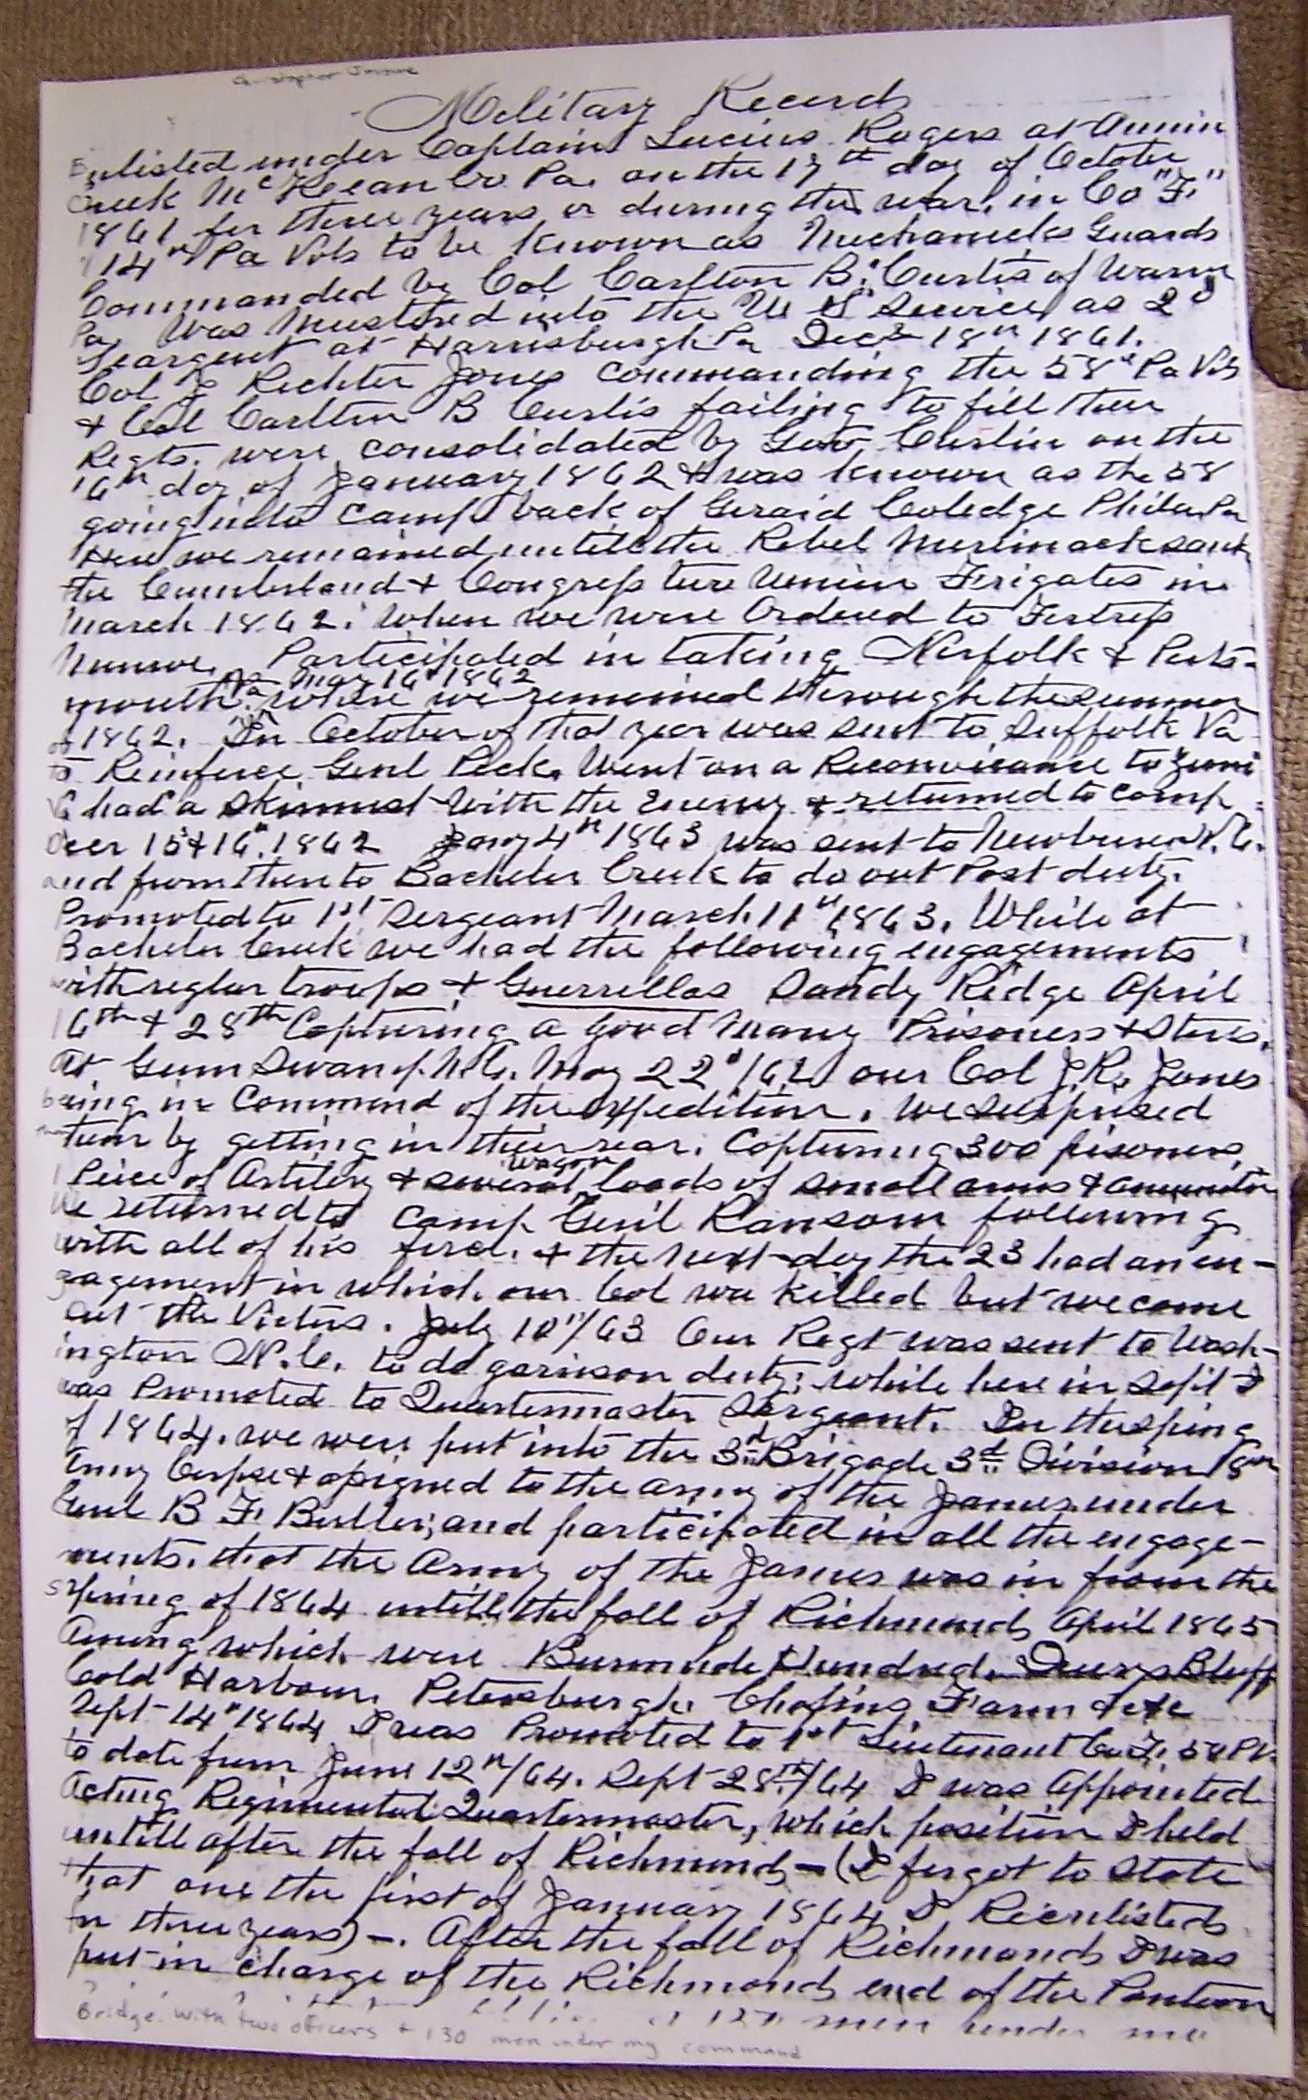 Military Record
Enlisted under Captain Lucius Rogers at Annin
Creek Mc Kean Co Pa. on the 19th day of October
1861 for three years or during the war, in Co "F"
114th Pa Vols to be known as Mechanicks Guards
Commanded by Col Carlton B. Curtis of Warren
Pa. Was Mustered into the U S Service as 2d
Seargent at Harrisburgh Pa Dec 18th 1861.
Col J Richter Jones commanding the 58th Pa Vols
& Col Carlton B Curtis failing to fill their
Regts. were consolidated by Gov. Curtin on the
16th day of January 1862 & was known as the 58
going into camp back of Geraid Coledge Phila. Pa
Here we remained untill the Rebel Merrimack sank
the Cumberland & Congress two Union Frigates in
March 1862. When we were Ordered to Fortress
Munroe. Participated in taking Norfolk & Ports-
mouth Va May 10th 1862 where we remained through the summer
of 1862. In October of that year was sent to Suffolk Va
to Reinforce Genl Peck. Went on a Reconnoisance to Zuni
Va had a skirmish with the Enemy & returned to camp
Decr 15 & 16th 1862 Jany 4th 1863 was sent to Newbern N.C.
and from then to Bachelor Creek to do out Post duty.
Promoted to 1st Sergeant March 11th 1863. While at
Bachelor Creek we had the following engagements
with reglar troops & Guerrillas Sandy Ridge April
16th & 28th Capturing a good many Prisoners & Stores.
At Gum Swamp N.C. May 22d /62 our Col J.R. Jones
being in Command of the expedition. We surprised
them by getting in their rear. Capturing 300 prisoners,
1 Peice of Artilery & several wagon loads of small arms & amunition
We returned to camp Genl Ransom following
with all of his force. & the next day the 23 had an en-
gagement in which our Col was killed but we come
out the Victors. July 10th/63 Our Regt was sent to Wash-
ington N.C. to do garrison duty; while here in Sept I
was Promoted to Quartermaster Sergeant. In the sping
of 1864. we were put into the 3d Brigade 3d Division 18th
Army Corpse & assigned to the army of the James under
Genl B F. Butler; and participated in all the engage-
ments. that the Army of the James was in from the
spring of 1864 untill the fall of Richmond April 1865
Among which were Burmude Hundred. Drurys Bluff
Cold Harbour. Petersburgh. Chafins Farm &c &c
Sept 14th 1864 I was Promoted to 1st Lieutenant Co. F. 58 PV.
to date from June 12th/64. Sept 28th/64 I was appointed
Acting Regimental Quartermaster, which position I held
untill after the fall of Richmond - (I forgot to state
that one the first of January 1864 I Reenlisted
for three years) -. After the fall of Richmond I was
put in charge of the Richmond end of the Pontoon
Bridge. with two officers & 130 men under my command